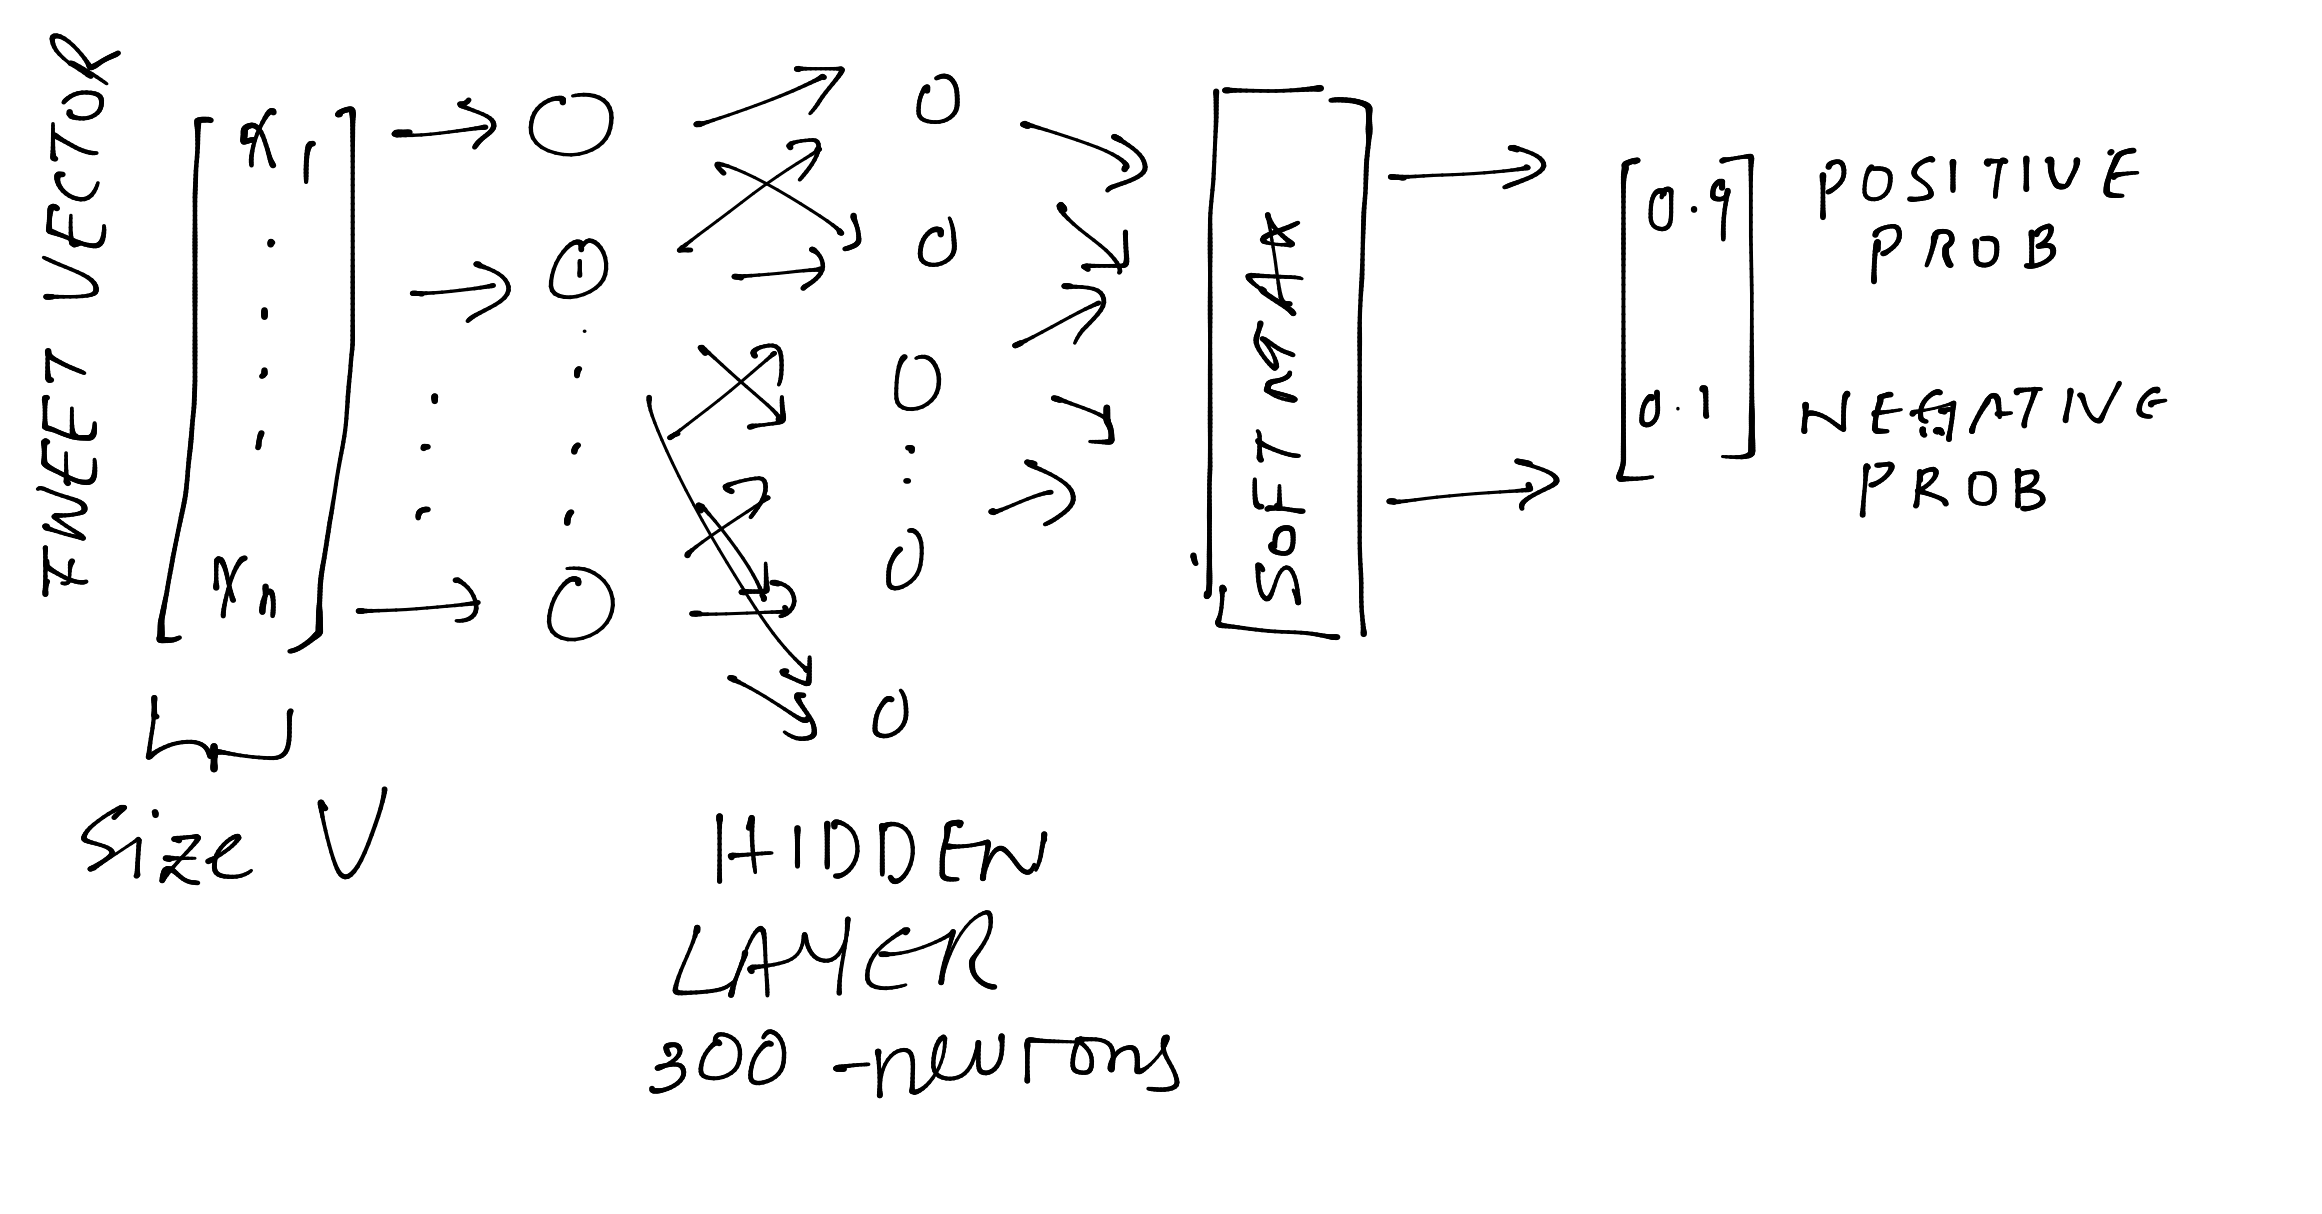 TWEET VECTOR
x1
xn
Size V
HIDDEN
LAYER
300 -neurons
SOFTMAX
0.9
0.1
POSITIVE
PROB
NEGATIVE
PROB